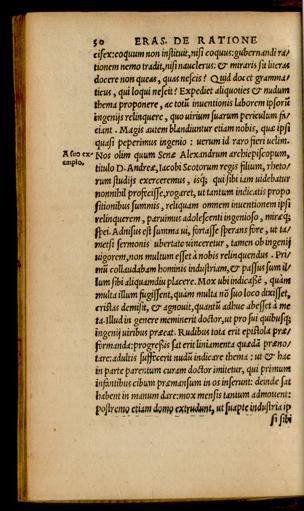 50 ERAS. DE RATIONE
cifex: coquum non instituit, nisi coquus: gubernandi ra⸗
tionem nemo tradit, nisi nauclerus: & miraris si literas
docere non queas, quas nescis? Quid docet gramma
ticus, qui loqui nescit? Expediet aliquoties & nudum
thema proponere, ac totū inuentionis laborem ipsorū
ingenijs relinquere, quo uirium suarum periculum fa⸗
ciant. Magis autem blandiuntur etiam nobis, quæ ipsi
quasi peperimus ingenio: uerum id raro fieri uelim.
A suo ex⸗
emplo.
Nos olim quum Senæ Alexandrum archiepiscopum,
titulo D. Andreæ, Iacobi Scotorum regis filium, rheto⸗
rum studijs exerceremus, isq; qui sibi iam uidebatur
nonnihil profecisse, rogaret, ut tantum indicatis propo
sitionibus summis, reliquam omnem inuentionem ipsi
relinquerem, paruimus adolescenti ingenioso, miræq;
spei. Adnisus est summa ui, fortasse sperans fore, ut ta⸗
metsi sermonis ubertate uinceretur, tamen ob ingenij
uigorem, non multum esset à nobis relinquendus. Pri⸗
mū collaudabam hominis industriam, & passus sum il⸗
lum sibi aliquamdiu placere. Mox ubi indicassē, quàm
multa illum fugissent, quàm multa nō suo loco dixisset,
cristas demisit, & agnouit, quantū adhuc abesset à me
ta. Illud in genere meminerit doctor, ut pro sui quibusq;
ingenij uiribus præeat. Rudibus tota erit epistola præ⸗
formanda: progressis sat erit liniamenta quædā præno⸗
tare: adultis suffecerit nudū indicare thema: ut & hac
in parte parentum curam doctor imitetur, qui primum
infantibus cibum præmansum in os inserunt: deinde sat
habent in manum dare: mox mensis tantum admouent:
postremo etiam domo extrudunt, ut suapte industria ip
si sibi